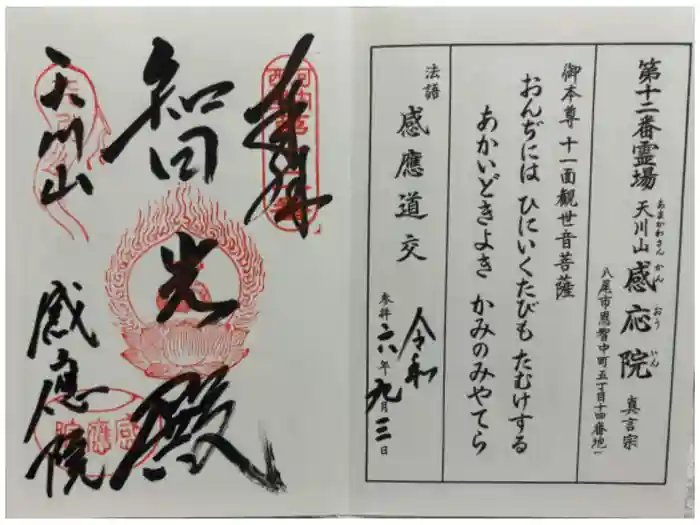 第十二番霊場 天川山 感応院 真言宗
あまかわさん かん おう いん
八尾市恩智中町五丁目十四番地一
御本尊 十一面観世音菩薩
おんぢには ひにいくたびも たむけする
あかいどきよき かみのみやてら
法語 感應道交
参拝 令和 六年 九月 三日
奉拝
智光殿
天川山
感應院
感應院